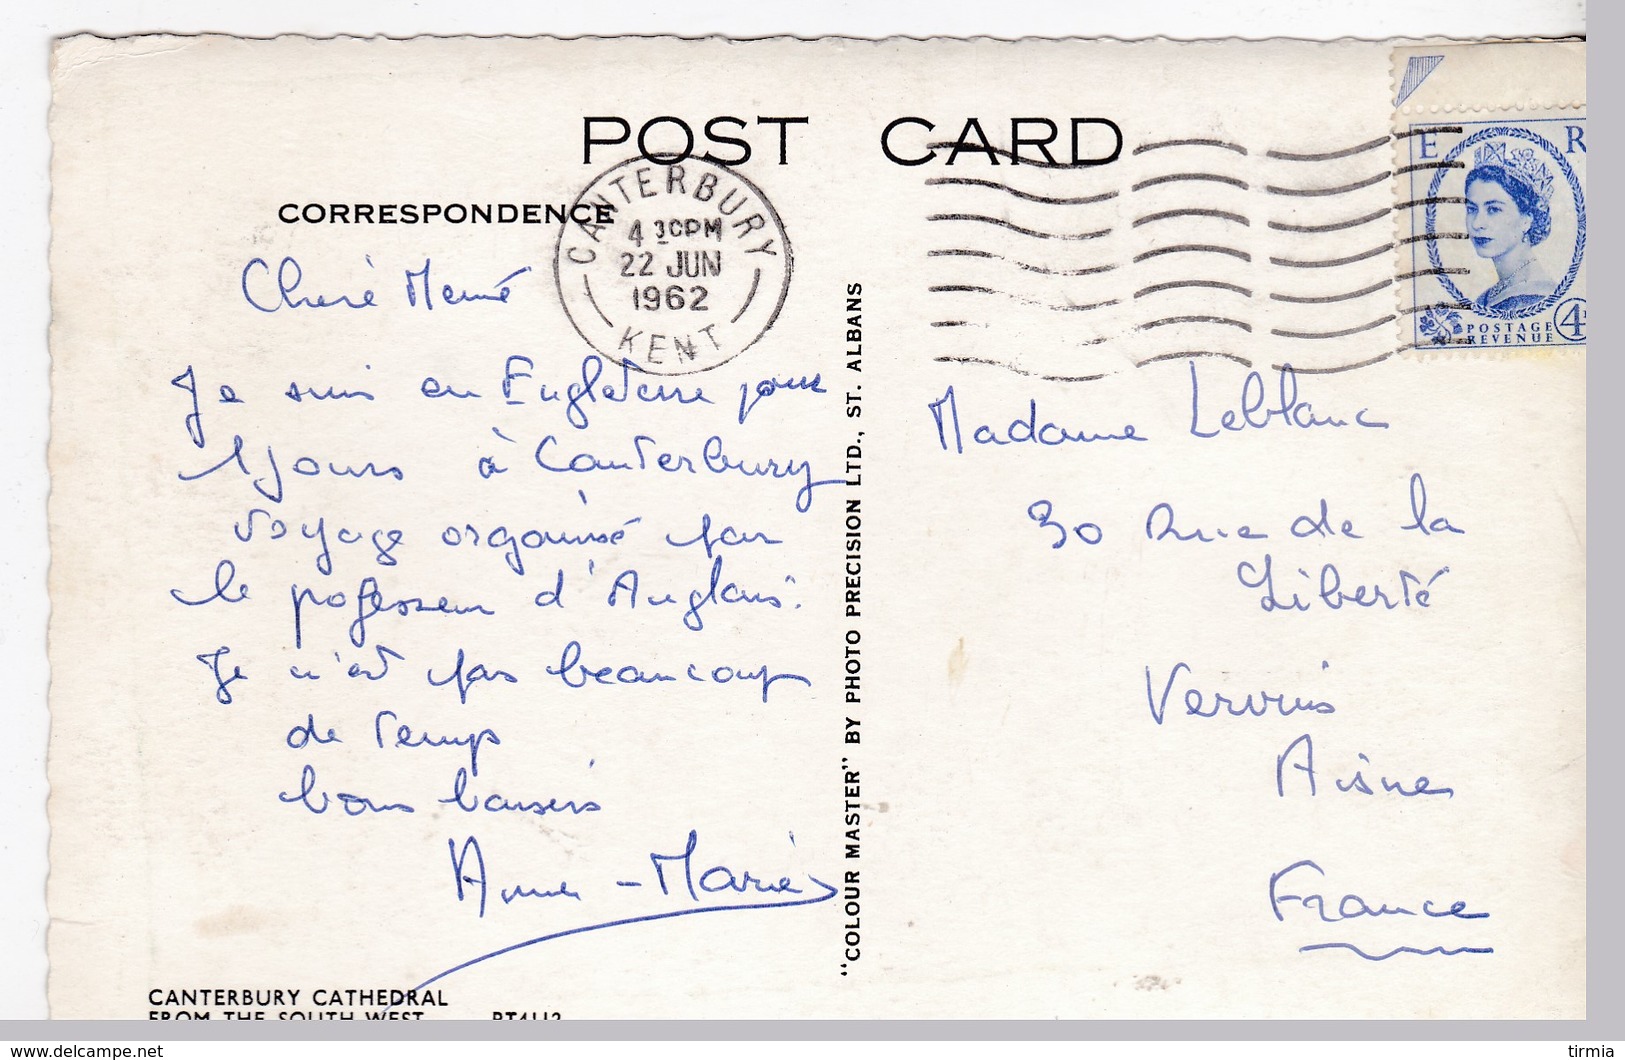 POST CARD
CORRESPONDENCE
CANTERBURY
4 30PM
22 JUN
1962
KENT
E R
POSTAGE 4
REVENUE
Cheré Memé
Je suis en Engleterre pour
1 jours à Canterbury
voyage organisé par
le pofesseur d'Anglais.
Je n'est pas beaucoup
de temps
bons baisers
Anne-Marie
"COLOUR MASTER" BY PHOTO PRECISION LTD., ST. ALBANS
Madame Leblanc
30 Rue de la
Liberté
Vervins
Aisne
France
CANTERBURY CATHEDRAL
FROM THE SOUTH WEST PT4112
www.delcampe.net
tirmia